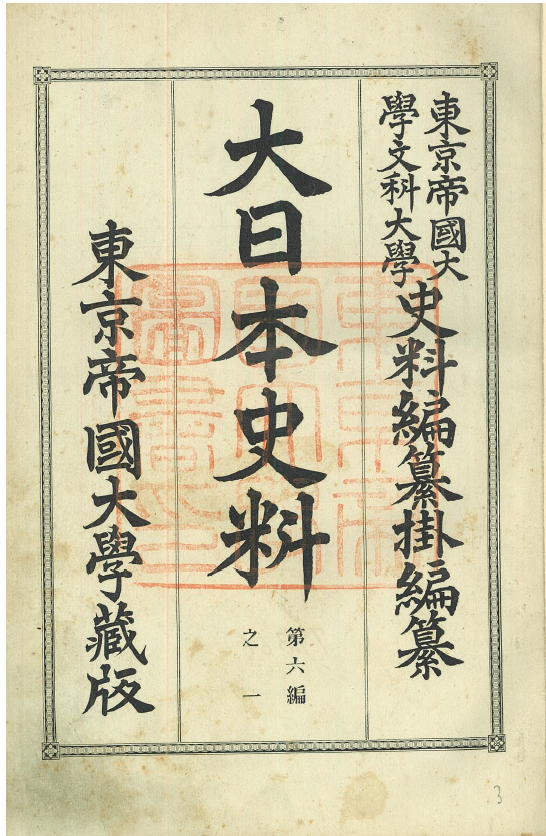 東京帝國大
學文科大學
史料編纂掛編纂
大日本史料
第六編
之一
東京帝國大學藏版
3